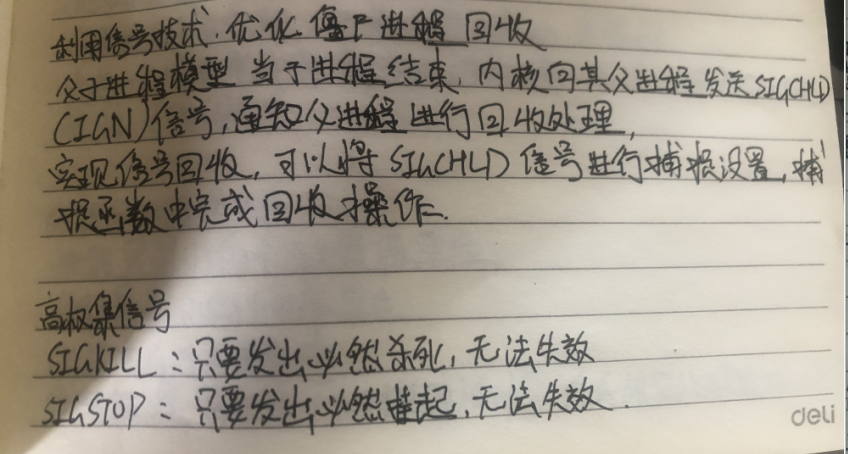 利用信号技术.优化僵尸进程回收
父子进程模型 当子进程结束,内核向其父进程发送SIGCHLD
(IGN)信号,通知父进程进行回收处理,
实现信号回收,可以将SIGCHLD信号进行捕捉设置,捕
捉函数中完成回收操作.
高权集信号
SIGKILL:只要发出必然杀死,无法失效
SIGSTOP:只要发出必然挂起,无法失效.
deli